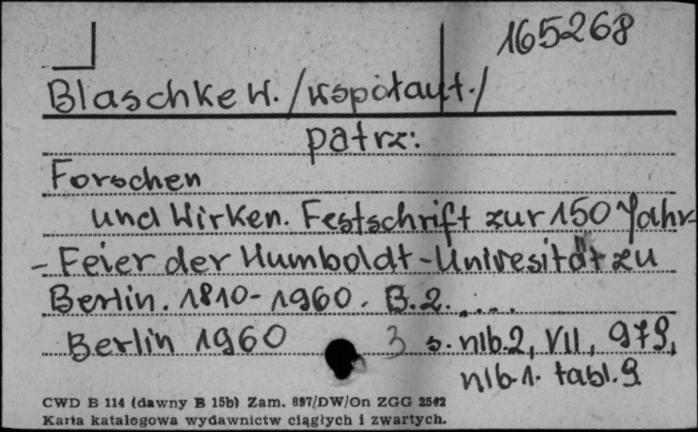 165268
Blaschke W. /współaut./
patrz:
Forschen
und Wirken. Festschrift zur 150 Jahr-
-Feier der Humboldt-Univesität zu
Berlin. 1810-1960. B.2. ....
Berlin 1960 3 s. nlb.2, VII, 979,
nlb.1. tabl.9
CWD B 114 (dawny B 15b) Zam. 897/DW/On ZGG 2542
Karta katalogowa wydawnictw ciągłych i zwartych.